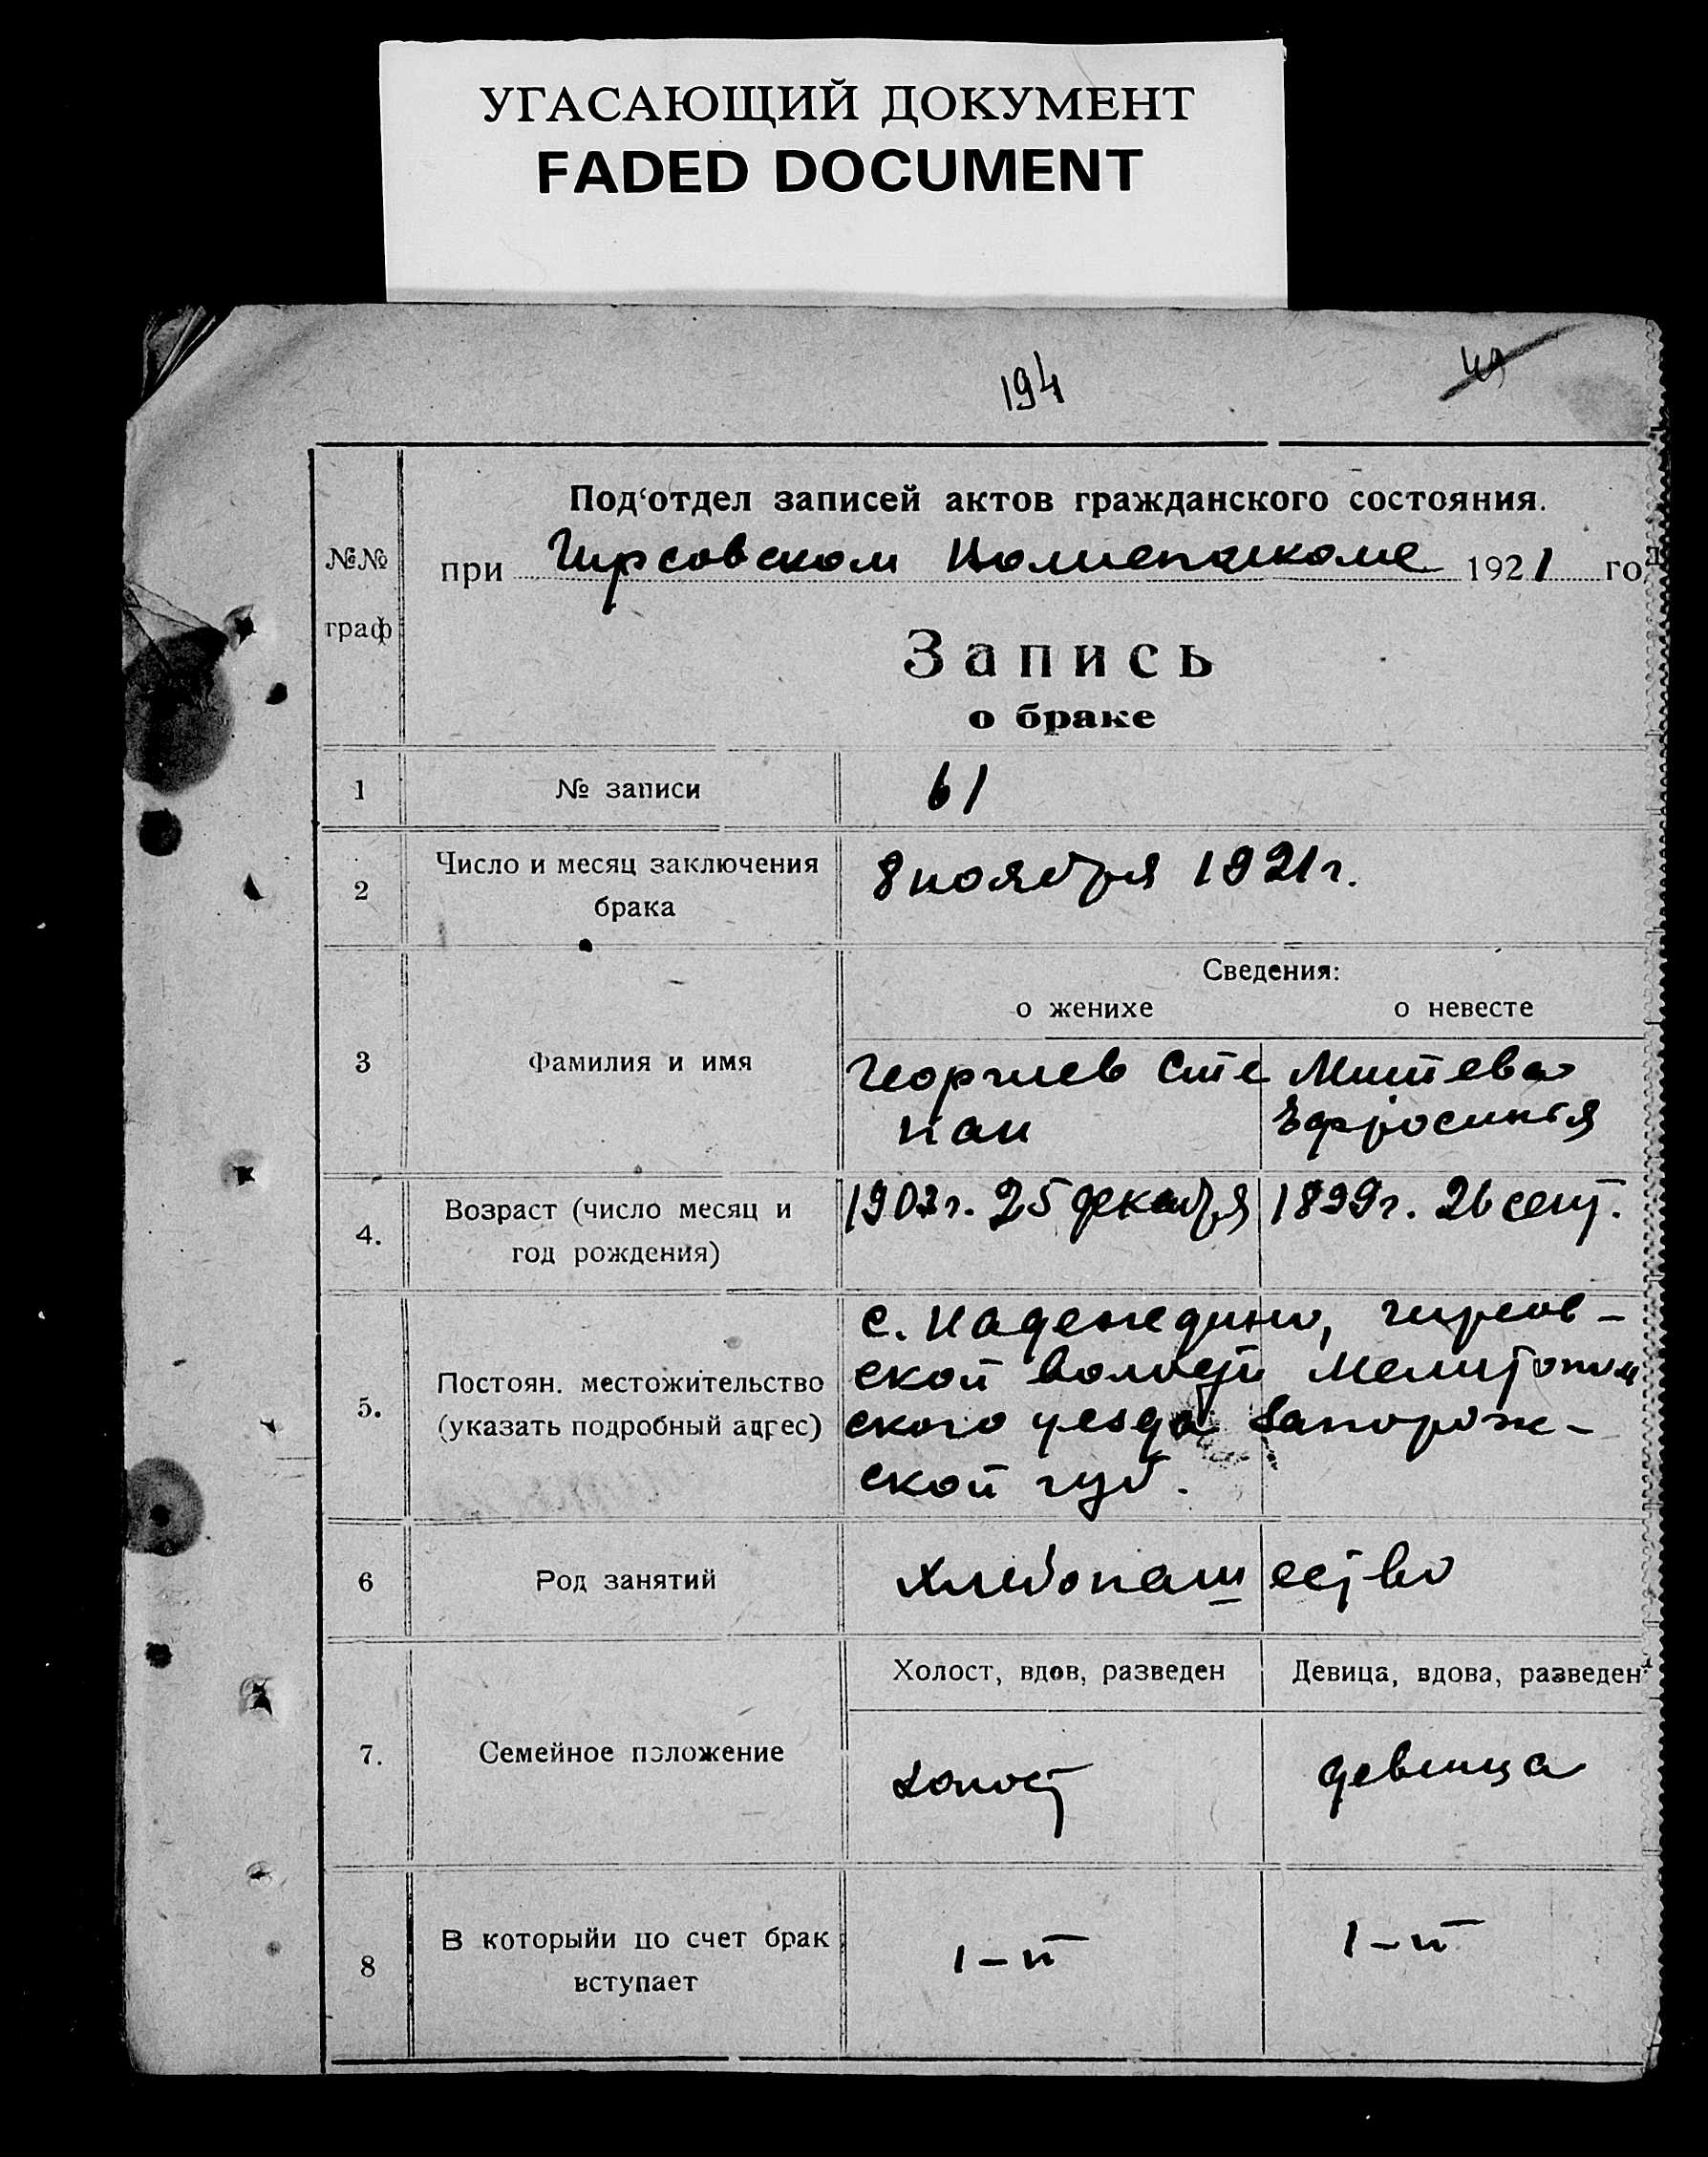 УГАСАЮЩИЙ ДОКУМЕНТ
FADED DOCUMENT
194
49
Под‘отдел записей актов гражданского состояния.
№№ граф
при Гирсовском 1921 год
Запись
о браке
1 № записи 61
2 Число и месяц заключения 8 ноября 1921 г.
брака
Сведения:
о женихе о невесте
3 Фамилия и имя Георгиев Сте Митева
пан Ефросинья
4. Возраст (число месяц и год рождения) 1902 г. 25 декабря 1899 г. 26 сент.
5. Постоян. местожительство (указать подробный адрес)
с. Надеждино, гирсов-
ской волости Мелитополь
ского уезда Запорож-
ской губ.
6 Род занятий Хлебопаш ество
Холост, вдов, разведен Девица, вдова, разведен
7. Семейное положение холост девица
8 В которыйи по счет брак 1-й 1-й
вступает